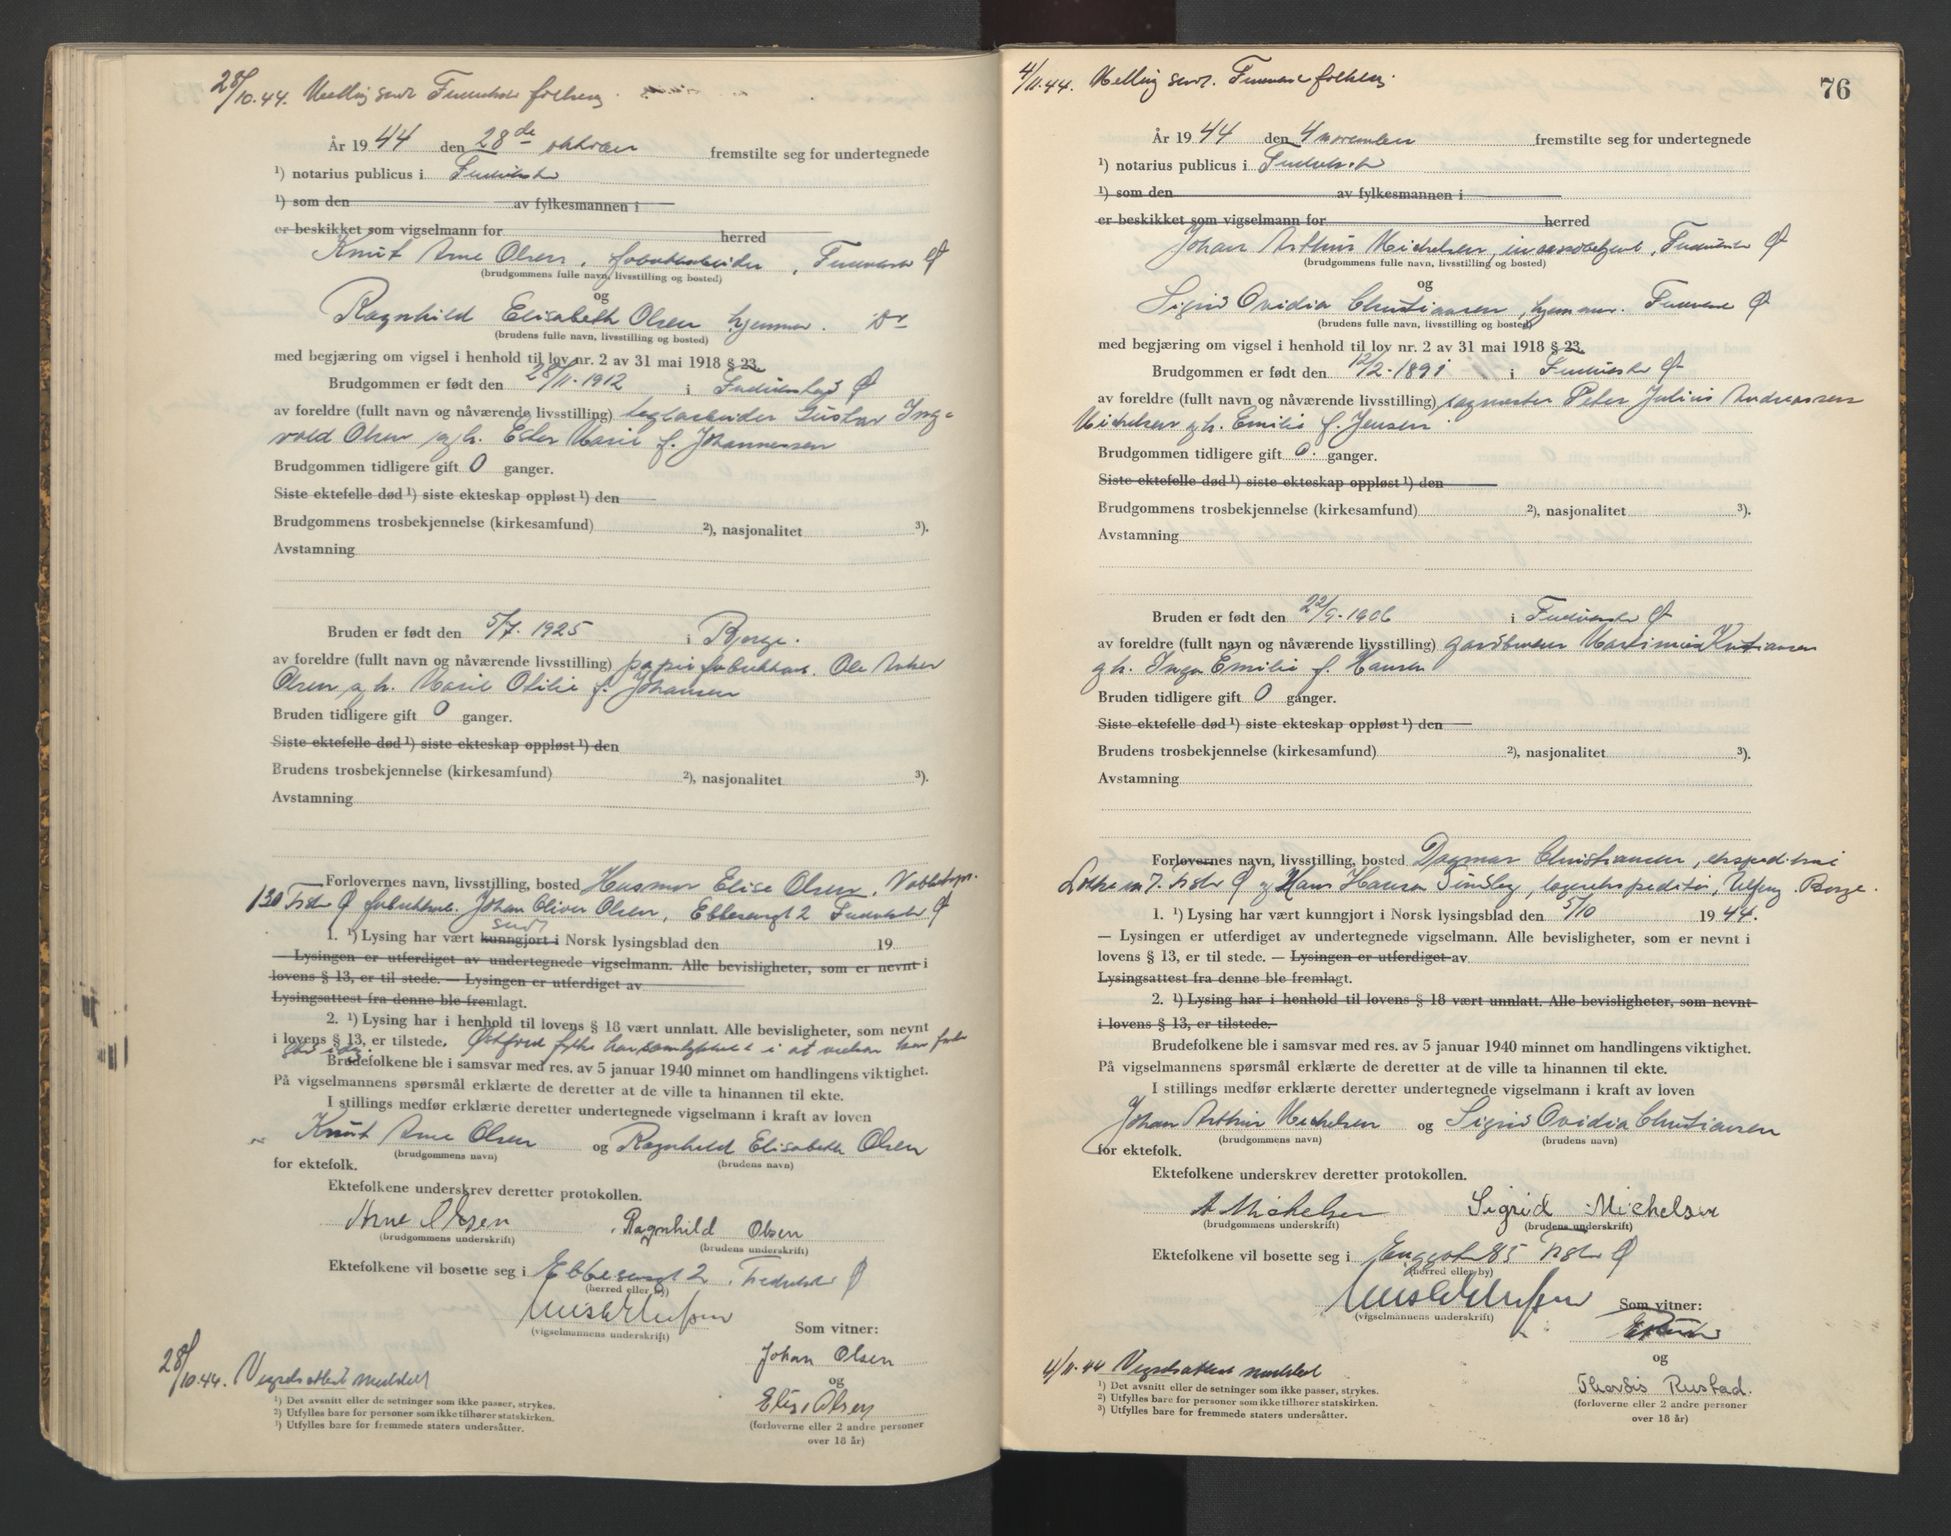 28/10.44. Melding sendt Fredrikstad folkereg.
År 1944 den 28de oktober fremstilte seg for undertegnede
¹) notarius publicus i Fredrikstad
¹) som den av fylkesmannen i
er beskikket som vigselmann for herred
Knut Arne Olsen, fabrikkarbeider, Fredrikstad Ø
(brudgommens fulle navn, livsstilling og bosted)
og
Ragnhild Elisabeth Olsen hjemmev.
(brudens fulle navn, livsstilling og bosted)
med begjæring om vigsel i henhold til lov nr. 2 av 31 mai 1918 § 23.
Brudgommen er født den 28/11-1912 i Fredrikstad Ø
av foreldre (fullt navn og nåværende livsstilling) teglarbeider Gustav Ing-
vald Olsen g.h. Ester Marie f. Johannessen
Brudgommen tidligere gift 0 ganger.
Siste ektefelle død ¹) siste ekteskap oppløst ¹) den
Brudgommens trosbekjennelse (kirkesamfund) ²), nasjonalitet ³).
Avstamning
Bruden er født den 5/7-1925 i Borge.
av foreldre (fullt navn og nåværende livsstilling) papirfabrikkarb. Ole Anker
Olsen g.h. Marie Otilie f. Johansen
Bruden tidligere gift 0 ganger.
Siste ektefelle død ¹) siste ekteskap oppløst ¹) den
Brudens trosbekjennelse (kirkesamfund) ²), nasjonalitet ³).
Avstamning
Forlovernes navn, livsstilling, bosted Husmor Elise Olsen,
130 Fstr Ø fabrikkarb. Johan Oliver Olsen, Ebbesensgt 2 Fredrikstad Ø
sendt
1. ¹) Lysing har vært kunngjort i Norsk lysingsblad den 19
— Lysingen er utferdiget av undertegnede vigselmann. Alle bevisligheter, som er nevnt i
lovens § 13, er til stede. — Lysingen er utferdiget av
Lysingsattest fra denne ble fremlagt.
2. ¹) Lysing har i henhold til lovens § 18 vært unnlatt. Alle bevisligheter, som nevnt
i lovens § 13, er tilstede. Østfold fylke har samtykket i at vielsen kan fore-
gå i dag.
Brudefolkene ble i samsvar med res. av 5 januar 1940 minnet om handlingens viktighet.
På vigselmannens spørsmål erklærte de deretter at de ville ta hinannen til ekte.
I stillings medfør erklærte deretter undertegnede vigselmann i kraft av loven
Knut Arne Olsen og Ragnhild Elisabeth Olsen
(brudgommens navn) (brudens navn)
for ektefolk.
Ektefolkene underskrev deretter protokollen.
Arne Olsen Ragnhild Olsen
(brudgommens underskrift) (brudens underskrift)
Ektefolkene vil bosette seg i Ebbesensgt 2. Fredrikstad Ø
(herred eller by)
(vigselmannens underskrift)
Som vitner:
Johan Olsen
og
Elise Olsen
(forloverne eller 2 andre personer
over 18 år)
28/10.44. Vigselsattest meddelt
¹) Det avsnitt eller de setninger som ikke passer, strykes.
²) Utfylles bare for personer som ikke tilhører statskirken.
³) Utfylles bare for fremmede staters undersåtter.
76
4/11.44. Melding sendt Fredrikstad folkereg.
År 1944 den 4 november fremstilte seg for undertegnede
¹) notarius publicus i Fredrikstad
¹) som den av fylkesmannen i
er beskikket som vigselmann for herred
Johan Arthur Michelsen, incassobetjent, Fredrikstad Ø
(brudgommens fulle navn, livsstilling og bosted)
og
Sigrid Ovidia Christiansen, hjemmev. Fredrikstad Ø
(brudens fulle navn, livsstilling og bosted)
med begjæring om vigsel i henhold til lov nr. 2 av 31 mai 1918 § 23.
Brudgommen er født den 12/2-1891 i Fredrikstad Ø
av foreldre (fullt navn og nåværende livsstilling) sagmester Peter Julius Andreassen
Michelsen g.h. Emilie f. Jensen
Brudgommen tidligere gift 0 ganger.
Siste ektefelle død ¹) siste ekteskap oppløst ¹) den
Brudgommens trosbekjennelse (kirkesamfund) ²), nasjonalitet ³).
Avstamning
Bruden er født den 22/9-1906 i Fredrikstad Ø
av foreldre (fullt navn og nåværende livsstilling) gardbruker Martinius Kristiansen
g.h. Inga Emilie f. Hansen
Bruden tidligere gift 0 ganger.
Siste ektefelle død ¹) siste ekteskap oppløst ¹) den
Brudens trosbekjennelse (kirkesamfund) ²), nasjonalitet ³).
Avstamning
Forlovernes navn, livsstilling, bosted Dagmar Christiansen, ekspeditrise
7. Fstr Ø og Hans Hansen lagerekspeditør, Borge.
1. ¹) Lysing har vært kunngjort i Norsk lysingsblad den 5/10 1944.
— Lysingen er utferdiget av undertegnede vigselmann. Alle bevisligheter, som er nevnt i
lovens § 13, er til stede. — Lysingen er utferdiget av
Lysingsattest fra denne ble fremlagt.
2. ¹) Lysing har i henhold til lovens § 18 vært unnlatt. Alle bevisligheter, som nevnt
i lovens § 13, er tilstede.
Brudefolkene ble i samsvar med res. av 5 januar 1940 minnet om handlingens viktighet.
På vigselmannens spørsmål erklærte de deretter at de ville ta hinannen til ekte.
I stillings medfør erklærte deretter undertegnede vigselmann i kraft av loven
Johan Arthur Michelsen og Sigrid Ovidia Christiansen
(brudgommens navn) (brudens navn)
for ektefolk.
Ektefolkene underskrev deretter protokollen.
A Michelsen Sigrid Michelsen
(brudgommens underskrift) (brudens underskrift)
Ektefolkene vil bosette seg i 85 Fstr Ø
(herred eller by)
(vigselmannens underskrift)
Som vitner:
og
Thordis Rustad.
(forloverne eller 2 andre personer
over 18 år)
4/11.44 Vigselsattest meddelt
¹) Det avsnitt eller de setninger som ikke passer, strykes.
²) Utfylles bare for personer som ikke tilhører statskirken.
³) Utfylles bare for fremmede staters undersåtter.